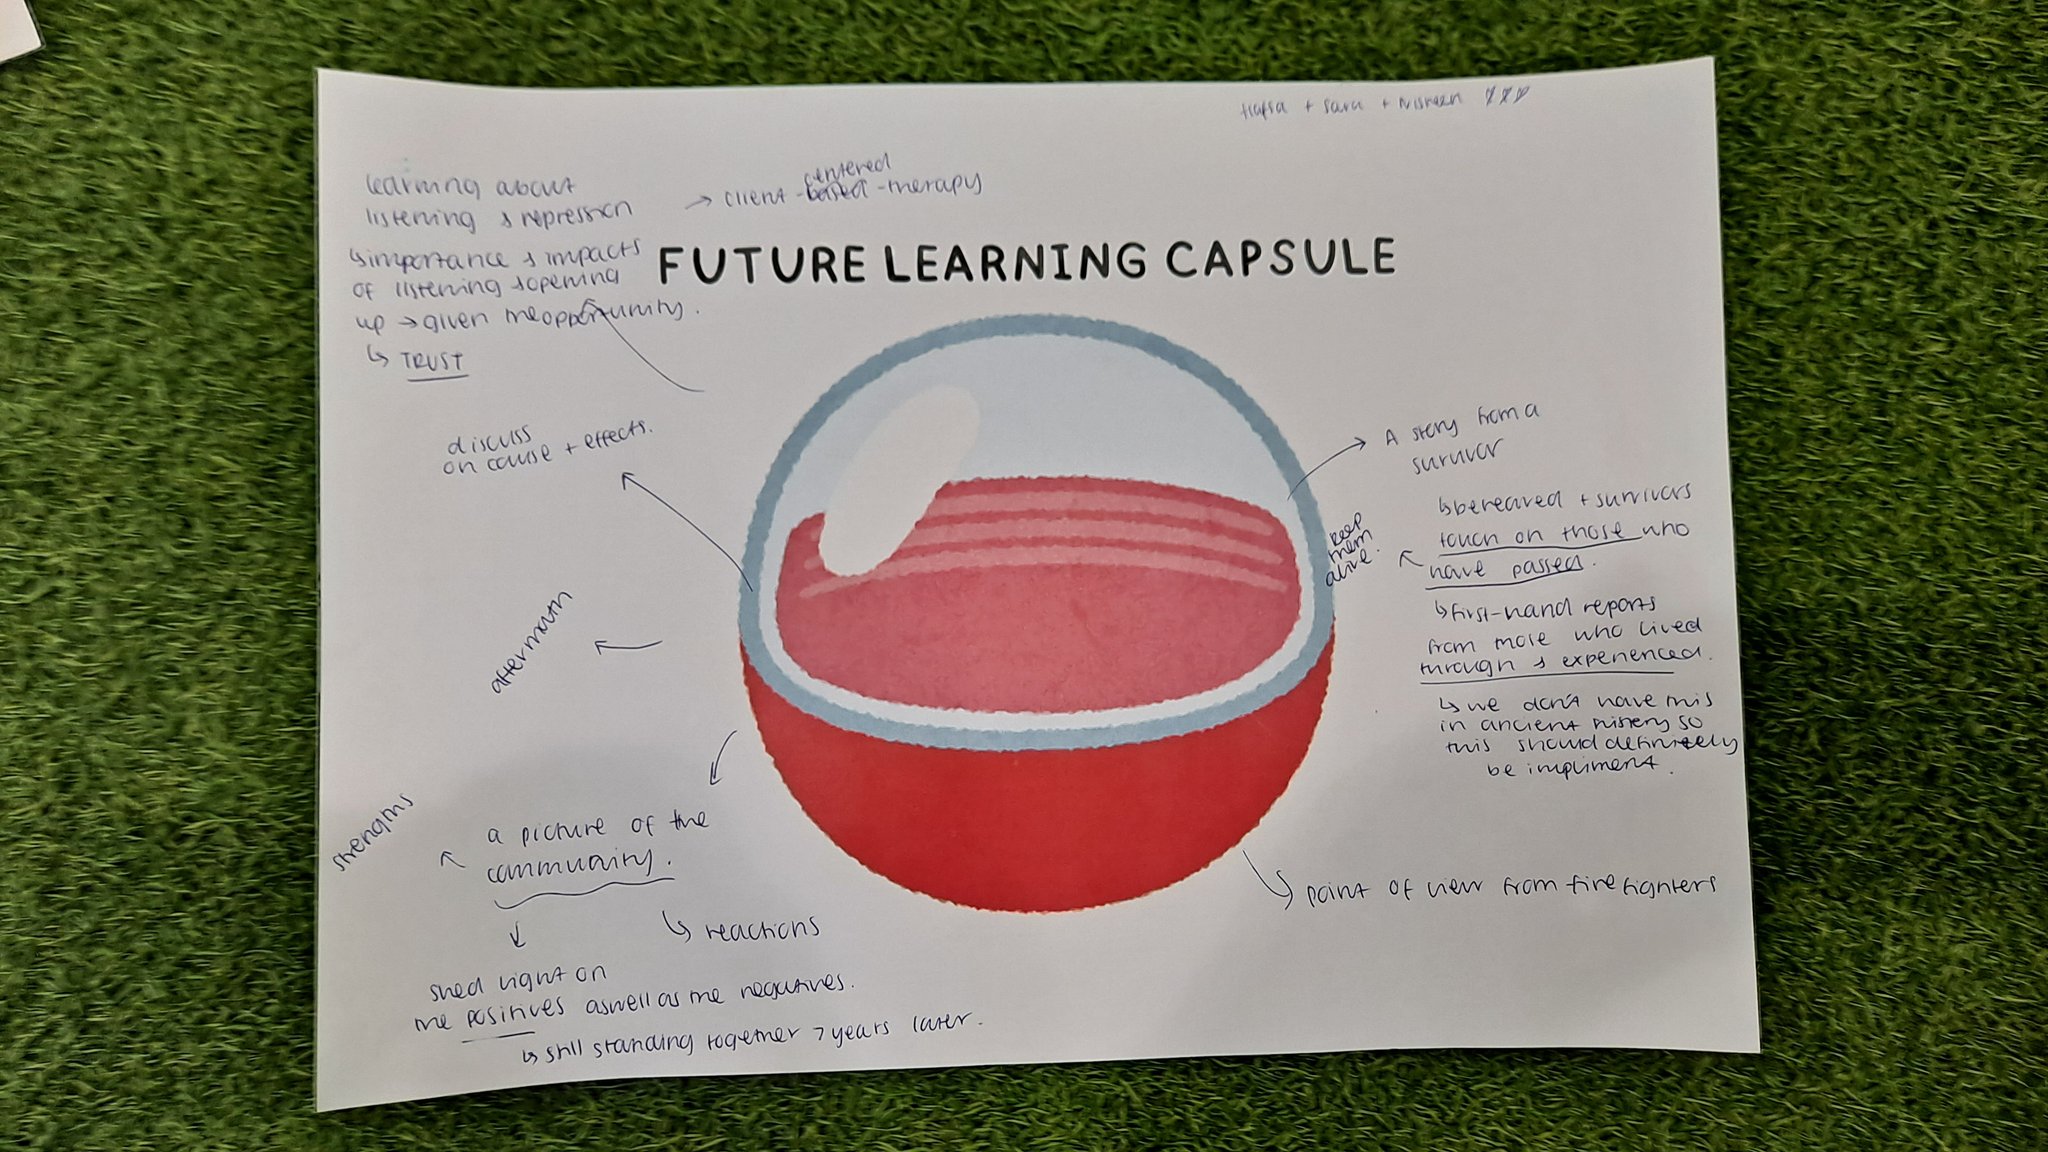 Hafsa + Sara + Nisreen
learning about
listening & repression
→ client-based-therapy
centered
↳importance & impacts
of listening & opening
up → given the opportunity.
↳ TRUST
FUTURE LEARNING CAPSULE
discuss
on cause + effects.
aftermath
strengths
a picture of the
community.
↳ reactions
shed light on
the positives aswell as the negatives.
↳ still standing together 7 years later.
A story from a
survivor
↳bereaved + survivors
touch on those who
have passed.
keep
them
alive.
↳first-hand reports
from those who lived
through & experienced.
↳ we don't have this
in ancient history so
this should definitely
be impliment.
point of view from firefighters